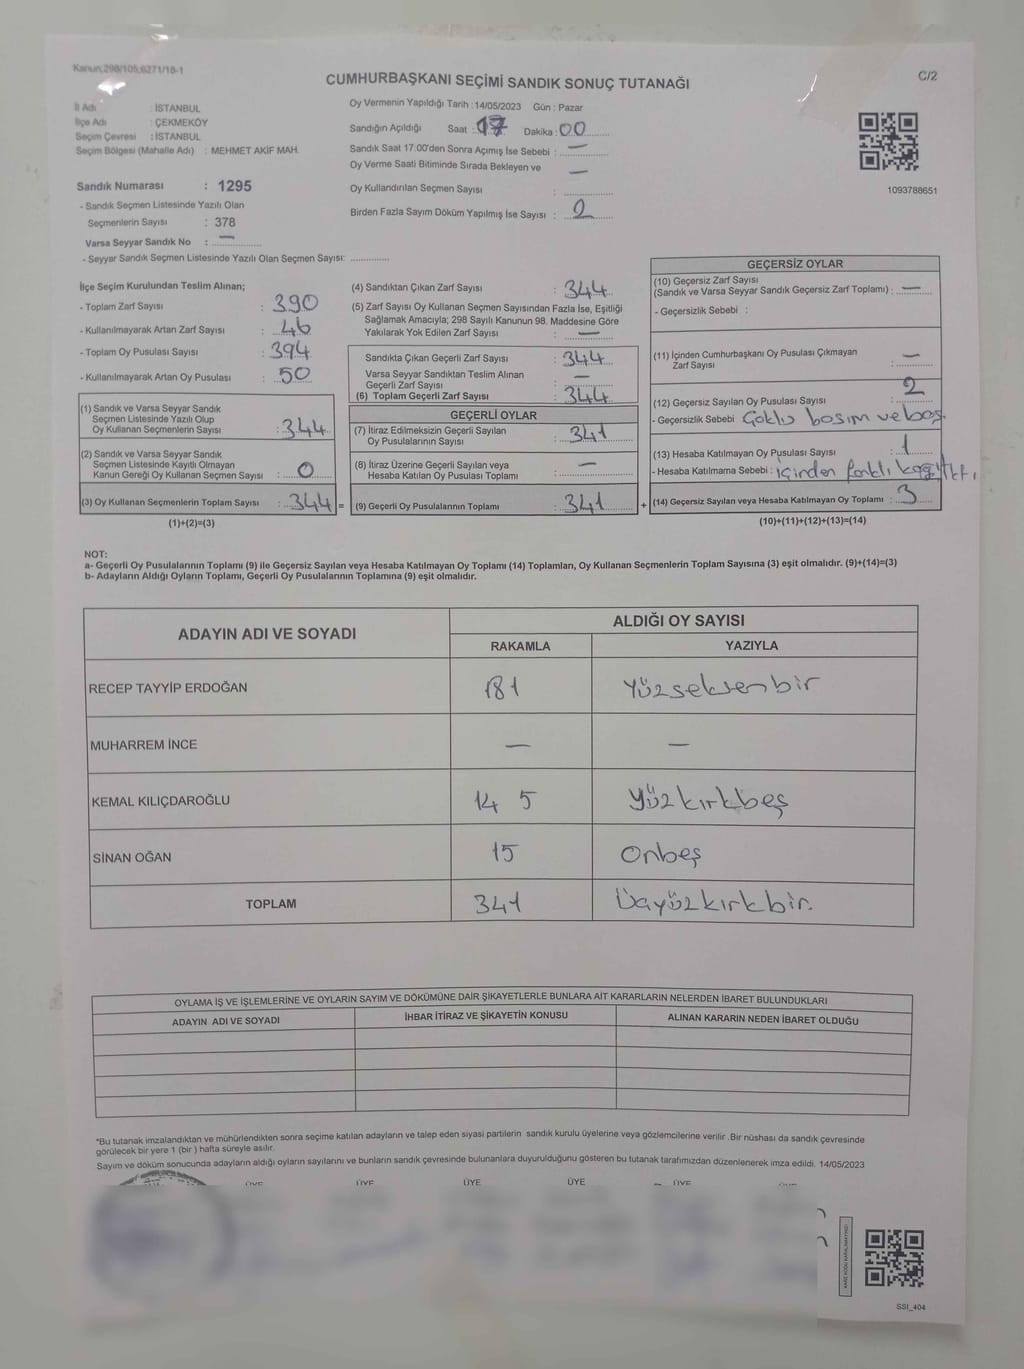 Kanun,298/105,6271/18-1
C/2
CUMHURBAŞKANI SEÇİMİ SANDIK SONUÇ TUTANAĞI
İl Adı : İSTANBUL
İlçe Adı : ÇEKMEKÖY
Seçim Çevresi : İSTANBUL
Seçim Bölgesi (Mahalle Adı) : MEHMET AKİF MAH.
Sandık Numarası : 1295
- Sandık Seçmen Listesinde Yazılı Olan
Seçmenlerin Sayısı : 378
Varsa Seyyar Sandık No : —
- Seyyar Sandık Seçmen Listesinde Yazılı Olan Seçmen Sayısı: ..............
Oy Vermenin Yapıldığı Tarih : 14/05/2023 Gün : Pazar
Sandığın Açıldığı Saat : 17 Dakika : 00
Sandık Saat 17:00'den Sonra Açımış İse Sebebi : —
Oy Verme Saati Bitiminde Sırada Bekleyen ve —
Oy Kullandırılan Seçmen Sayısı : ..............
Birden Fazla Sayım Döküm Yapılmış İse Sayısı : 2
1093788651
İlçe Seçim Kurulundan Teslim Alınan;
- Toplam Zarf Sayısı : 390
- Kullanılmayarak Artan Zarf Sayısı : 46
- Toplam Oy Pusulası Sayısı : 394
- Kullanılmayarak Artan Oy Pusulası : 50
(1) Sandık ve Varsa Seyyar Sandık
Seçmen Listesinde Yazılı Olup
Oy Kullanan Seçmenlerin Sayısı : 344
(2) Sandık ve Varsa Seyyar Sandık
Seçmen Listesinde Kayıtlı Olmayan
Kanun Gereği Oy Kullanan Seçmen Sayısı : 0
(3) Oy Kullanan Seçmenlerin Toplam Sayısı : 344 =
(1)+(2)=(3)
(4) Sandıktan Çıkan Zarf Sayısı : 344
(5) Zarf Sayısı Oy Kullanan Seçmen Sayısından Fazla İse, Eşitliği
Sağlamak Amacıyla; 298 Sayılı Kanunun 98. Maddesine Göre
Yakılarak Yok Edilen Zarf Sayısı : —
Sandıkta Çıkan Geçerli Zarf Sayısı : 344
Varsa Seyyar Sandıktan Teslim Alınan
Geçerli Zarf Sayısı : —
(6) Toplam Geçerli Zarf Sayısı : 344
GEÇERLİ OYLAR
(7) İtiraz Edilmeksizin Geçerli Sayılan
Oy Pusulalarının Sayısı : 341
(8) İtiraz Üzerine Geçerli Sayılan veya
Hesaba Katılan Oy Pusulası Toplamı : —
(9) Geçerli Oy Pusulalarının Toplamı : 341 +
GEÇERSİZ OYLAR
(10) Geçersiz Zarf Sayısı
(Sandık ve Varsa Seyyar Sandık Geçersiz Zarf Toplamı) : —
- Geçersizlik Sebebi :
(11) İçinden Cumhurbaşkanı Oy Pusulası Çıkmayan
Zarf Sayısı : —
(12) Geçersiz Sayılan Oy Pusulası Sayısı : 2
- Geçersizlik Sebebi : Çoklu basım ve boş
(13) Hesaba Katılmayan Oy Pusulası Sayısı : 1
- Hesaba Katılmama Sebebi : içinden farklı
(14) Geçersiz Sayılan veya Hesaba Katılmayan Oy Toplamı : 3
(10)+(11)+(12)+(13)=(14)
NOT:
a- Geçerli Oy Pusulalarının Toplamı (9) ile Geçersiz Sayılan veya Hesaba Katılmayan Oy Toplamı (14) Toplamları, Oy Kullanan Seçmenlerin Toplam Sayısına (3) eşit olmalıdır. (9)+(14)=(3)
b- Adayların Aldığı Oyların Toplamı, Geçerli Oy Pusulalarının Toplamına (9) eşit olmalıdır.
ADAYIN ADI VE SOYADI
ALDIĞI OY SAYISI
RAKAMLA YAZIYLA
RECEP TAYYİP ERDOĞAN 181 Yüzseksenbir
MUHARREM İNCE — —
KEMAL KILIÇDAROĞLU 145 Yüzkırkbeş
SİNAN OĞAN 15 Onbeş
TOPLAM 341 Üçyüzkırkbir.
OYLAMA İŞ VE İŞLEMLERİNE VE OYLARIN SAYIM VE DÖKÜMÜNE DAİR ŞİKAYETLERLE BUNLARA AİT KARARLARIN NELERDEN İBARET BULUNDUKLARI
ADAYIN ADI VE SOYADI İHBAR İTİRAZ VE ŞİKAYETİN KONUSU ALINAN KARARIN NEDEN İBARET OLDUĞU
*Bu tutanak imzalandıktan ve mühürlendikten sonra seçime katılan adayların ve talep eden siyasi partilerin sandık kurulu üyelerine veya gözlemcilerine verilir .Bir nüshası da sandık çevresinde
görülecek bir yere 1 (bir ) hafta süreyle asılır.
Sayım ve döküm sonucunda adayların aldığı oyların sayılarını ve bunların sandık çevresinde bulunanlara duyurulduğunu gösteren bu tutanak tarafımızdan düzenlenerek imza edildi. 14/05/2023
ÜYE ÜYE ÜYE ÜYE ÜYE
SSI_404